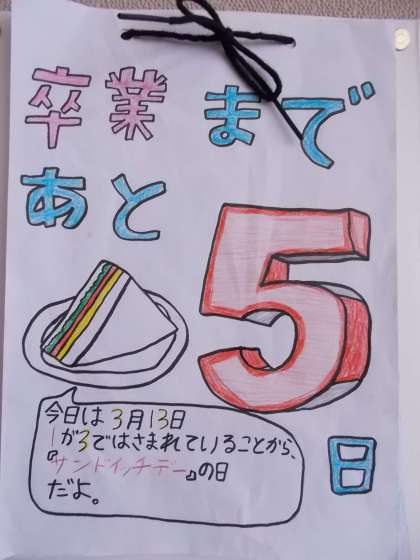 卒業まで
あと
5
日
今日は3月13日
1が3ではさまれていることから、
『サンドイッチデー』の日
だよ。